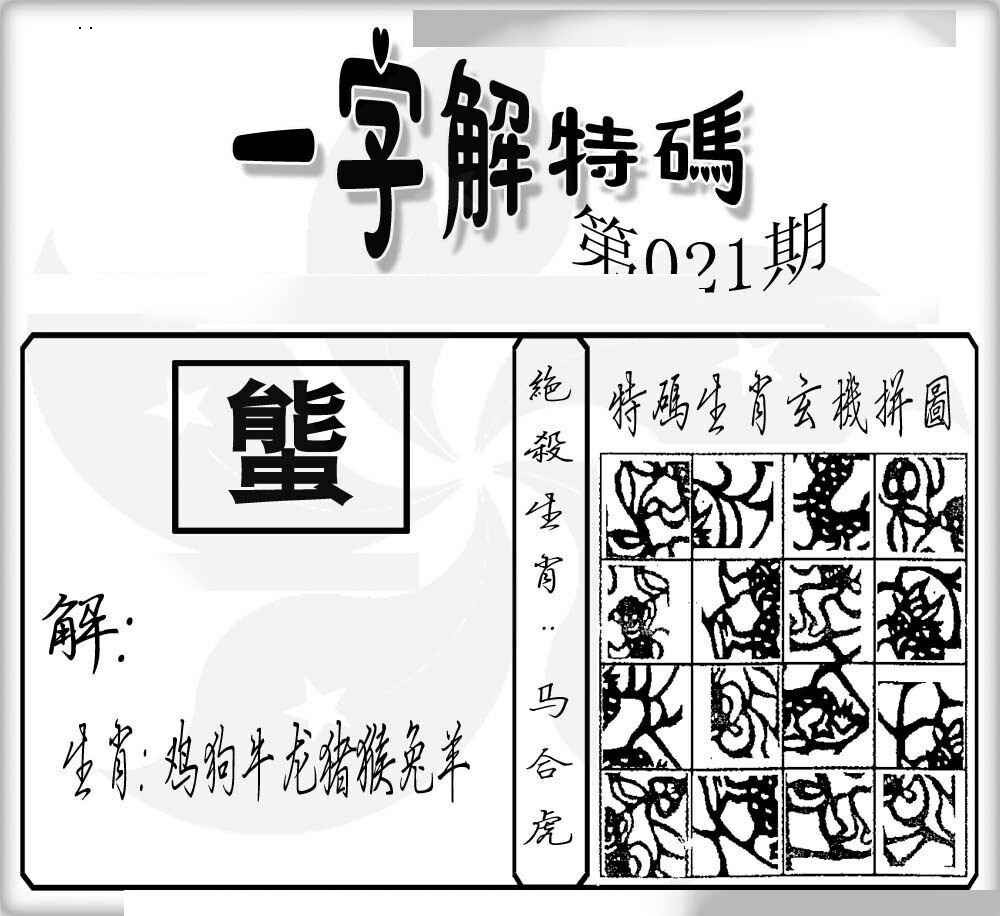 一字解特碼
第021期
螚
解:
生肖:鸡狗牛龙猪猴兔羊
絶殺生肖:马合虎
特碼生肖玄機拼圖